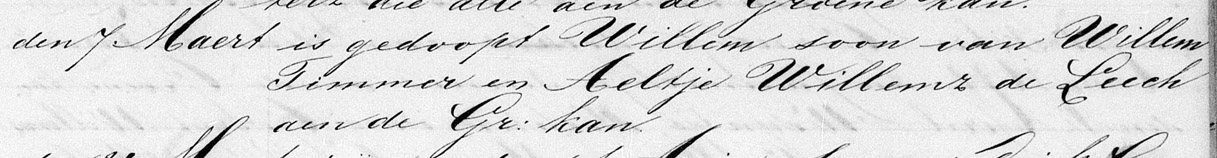 die alle aen de Groene kan.
den 7 Maert is gedoopt Willem soon van Willem
Timmer en Aeltje Willemz de Leech
aen de Gr: kan.